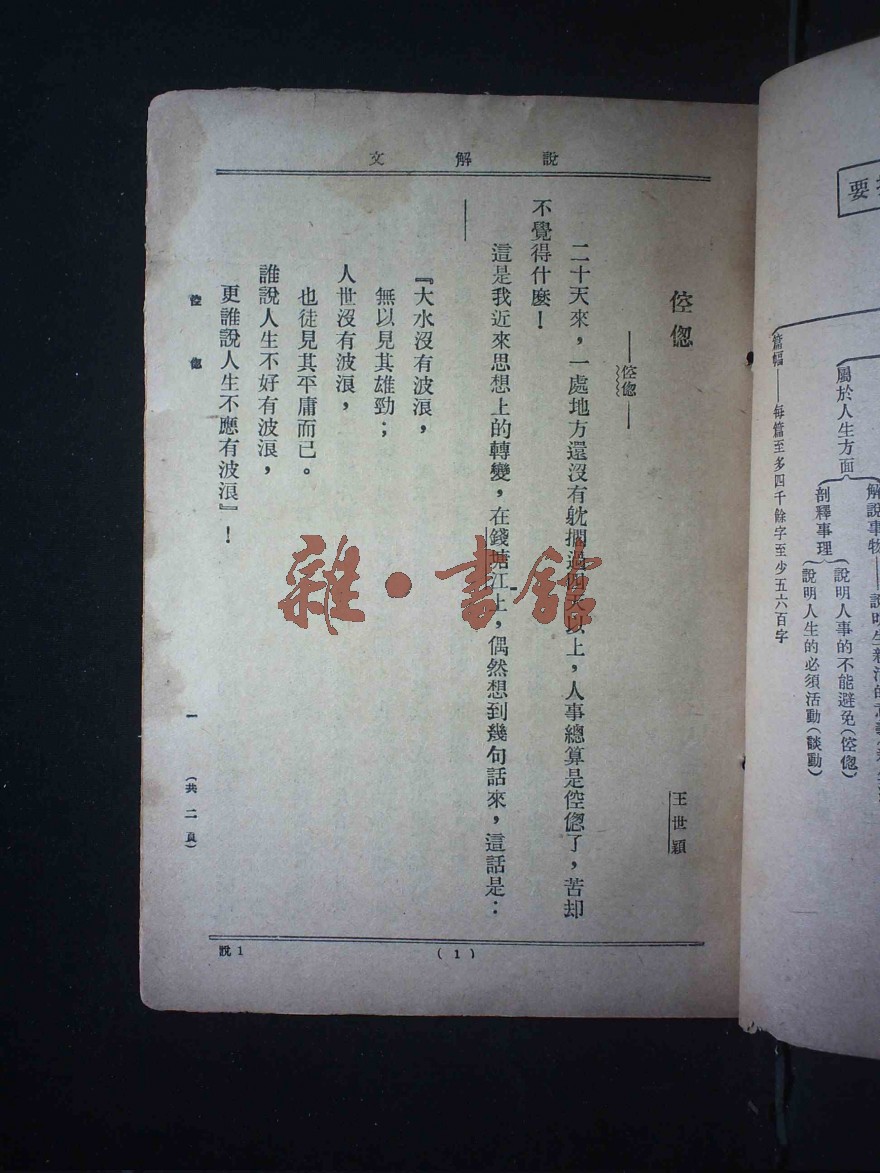 說解文
倥傯
——倥傯——
王世穎
二十天來，一處地方還沒有躭擱過四天以上，人事總算是倥傯了，苦却
不覺得什麼！
這是我近來思想上的轉變，在錢塘江上，偶然想到幾句話來，這話是：
——
『大水沒有波浪，
無以見其雄勁；
人世沒有波浪，
也徒見其平庸而已。
誰說人生不好有波浪，
更誰說人生不應有波浪』！
倥傯
一
（共二頁）
說1
(1)
雜·書館
要
解說事物
屬於人生方面
剖釋事理
說明人事的不能避免（倥傯）
說明人生的必須活動（談動）
篇幅——每篇至多四千餘字至少五六百字